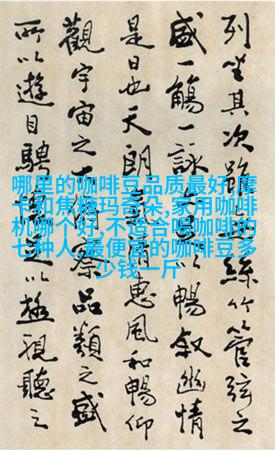 列坐其次雖絲竹管弦之
盛一觴一詠以暢敘幽情
是日也天朗惠風和暢仰
觀宇宙之大察品類之盛
所以遊目騁以極視聽之
哪里的咖啡豆品质最好,摩
卡和焦糖玛奇朵,家用咖啡
机哪个好,不适合喝咖啡的
七种人,最便宜的咖啡豆多
少钱一斤